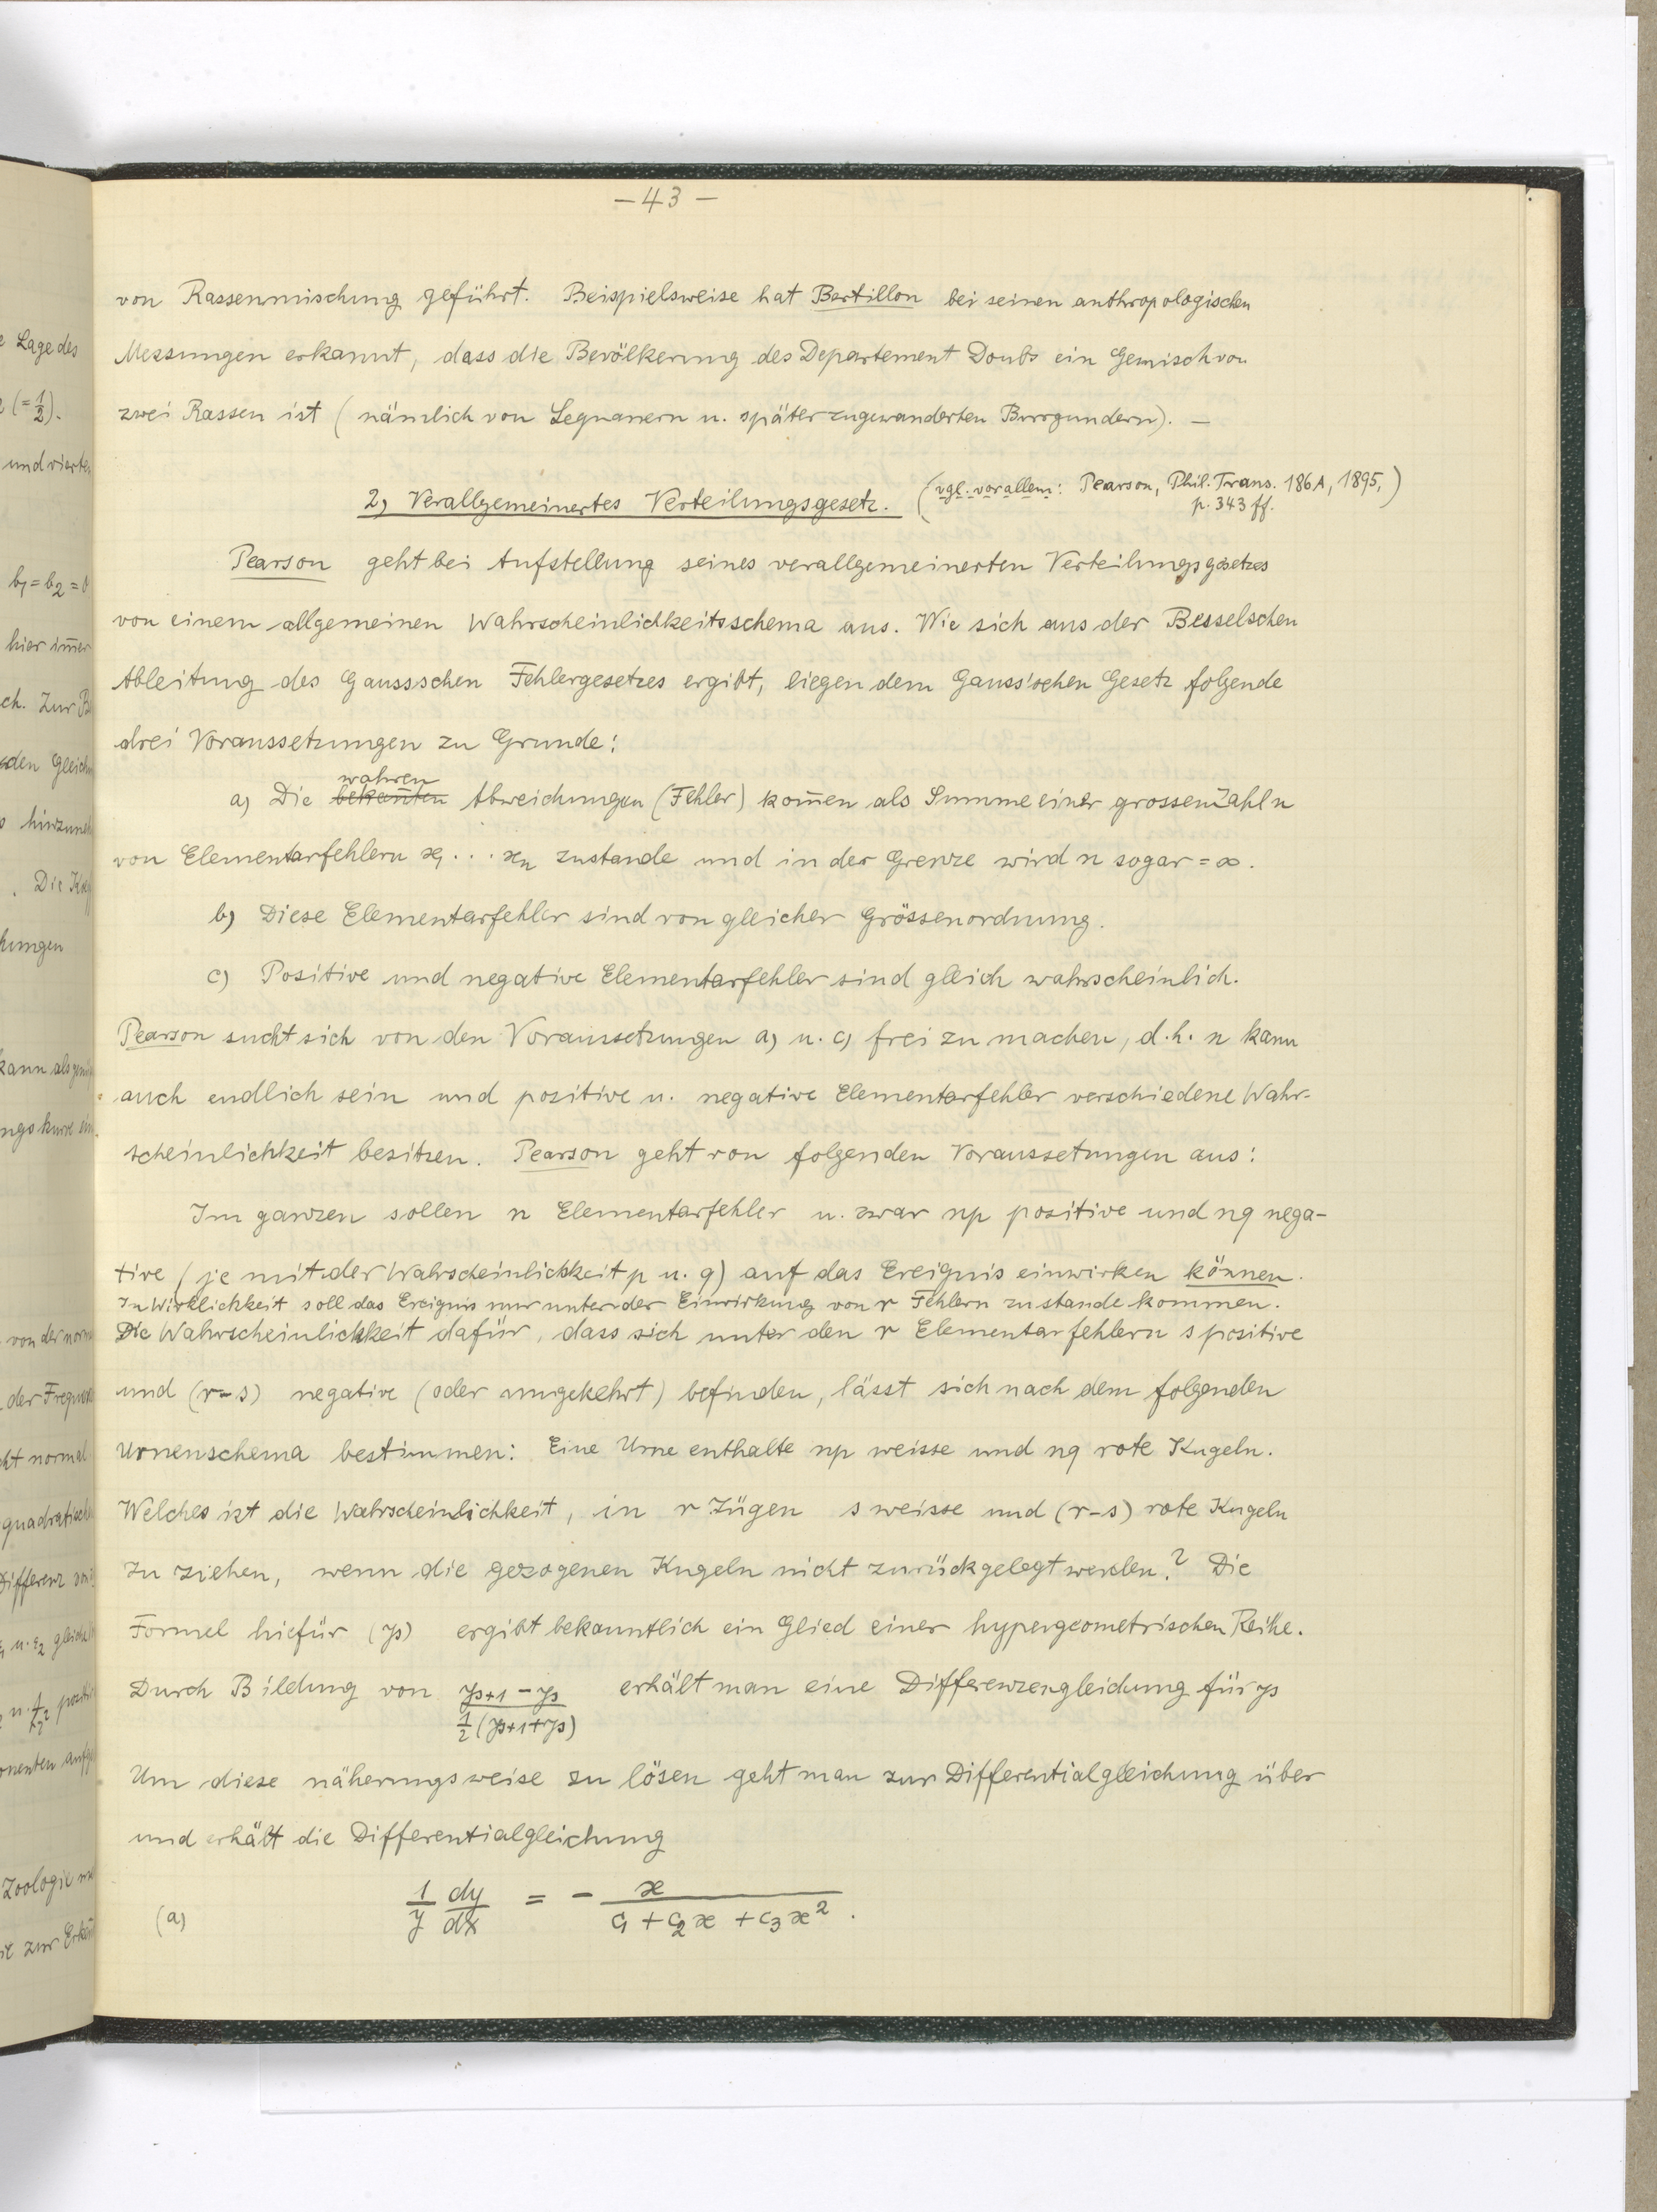 - 43 -
von Rassenmischung geführt. Beispielsweise hat Bertillon bei seinen anthropologischen
Messungen erkannt, dass die Bevölkerung des Departement Doubs ein Gemisch von
zwei Rassen ist (nämlich von Sequanern u. später zugewanderten Burgundern). -
2) Verallgemeinertes Verteilungsgesetz. (vgl. vor allem: Pearson, Phil. Trans. 186A, 1895,)
p. 343 ff.
Pearson geht bei Aufstellung seines verallgemeinerten Verteilungsgesetzes
von einem allgemeinen Wahrscheinlichkeitsschema aus. Wie sich aus der Besselschen
Ableitung des Gaussschen Fehlergesetzes ergibt, liegen dem Gauss'schen Gesetz folgende
drei Voraussetzungen zu Grunde:
wahren
a) Die bekannten Abweichungen (Fehler) kom̄en als Summe einer grossen Zahl n
von Elementarfehlern x₁ . . . xₙ zustande und in der Grenze wird n sogar = ∞.
b) Diese Elementarfehler sind von gleicher Grössenordnung.
c) Positive und negative Elementarfehler sind gleich wahrscheinlich.
Pearson sucht sich von den Voraussetzungen a) u. c) frei zu machen, d.h. n kann
auch endlich sein und positive u. negative Elementarfehler verschiedene Wahr-
scheinlichkeit besitzen. Pearson geht von folgenden Voraussetungen aus:
Im ganzen sollen n Elementarfehler u. zwar np positive und nq nega-
tive (je mit der Wahrscheinlichkeit p u. q) auf das Ereignis einwirken können.
In Wirklichkeit soll das Ereignis nur unter der Einwirkung von r Fehlern zustande kommen.
Die Wahrscheinlichkeit dafür, dass sich unter den r Elementarfehlern s positive
und (r-s) negative (oder umgekehrt) befinden, lässt sich nach dem folgenden
Urnenschema bestimmen: Eine Urne enthalte np weisse und nq rote Kugeln.
Welches ist die Wahrscheinlichkeit, in r Zügen s weisse und (r-s) rote Kugeln
zu ziehen, wenn die gezogenen Kugeln nicht zurückgelegt werden? Die
Formel hiefür (yₛ) ergibt bekanntlich ein Glied einer hypergeometrischen Reihe.
Durch Bildung von (yₛ₊₁ - yₛ) / ½ (yₛ₊₁ + yₛ) erhält man eine Differenzengleichung für yₛ
Um diese näherungsweise zu lösen geht man zur Differentialgleichung über
und erhält die Differentialgleichung
(a) 1/y dy/dx = - x / (c₁ + c₂x + c₃x²) .